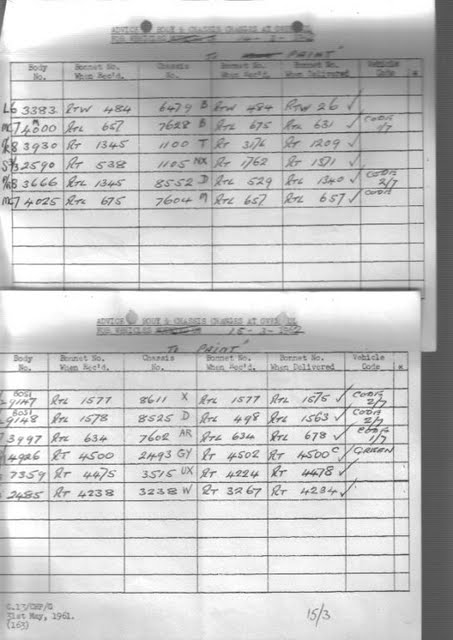 ADVICE BODY & CHASSIS CHANGES AT
FOR VEHICLES
TO PAINT"
Body No. Bonnet No. When Rec'd. Chassis No. Bonnet No. When Rec'd. Bonnet No. When Delivered Vehicle Code *
L6 3383 RTW 484 6479 B RTW 484 RTW 26 ✓
4000 RTL 657 7628 B RTL 675 RTL 631 ✓
3930 RT 1345 1100 T RT 3176 RT 1209 ✓
2590 RT 538 1105 NX RT 1762 RT 1371 ✓
3666 RTL 1345 8552 D RTL 529 RTL 1340 ✓ 2/7
4025 RTL 675 7604 RTL 657 RTL 657 ✓
ADVICE BODY & CHASSIS CHANGES AT
FOR VEHICLES 15-3-1962
TO PAINT"
Body No. Bonnet No. When Rec'd. Chassis No. Bonnet No. When Rec'd. Bonnet No. When Delivered Vehicle Code *
9147 RTL 1577 8611 X RTL 1577 RTL 1575 ✓ 2/7
9148 RTL 1578 8525 D RTL 498 RTL 1563 ✓ 2/7
3997 RTL 634 7602 AR RTL 634 RTL 678 ✓ 1/7
4926 RT 4500 2493 GY RT 4502 RT 4500 C ✓ GREEN
7359 RT 4475 3515 UX RT 4224 RT 4478 ✓
2485 RT 4238 3238 W RT 3267 RT 4234 ✓
31st May, 1961.
(163)
15/3